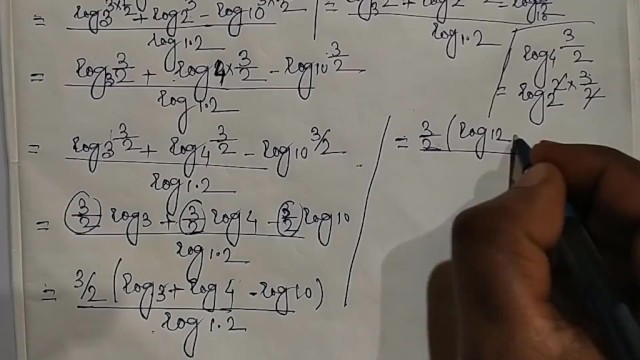 = log 3^{3×1/2} + log 2^3 - log 10^{3×1/2}
log 1.2
= log 3^{3/2} + log 4^{×3/2} - log 10^{3/2}
log 1.2
= log 3^{3/2} + log 4^{3/2} - log 10^{3/2}
log 1.2
= 3/2 log 3 + 3/2 log 4 - 3/2 log 10
log 1.2
= 3/2 (log 3 + log 4 - log 10)
log 1.2
log 1.2
log 4^{3/2}
= log 2^{2×3/2}
= 3/2 (log 12